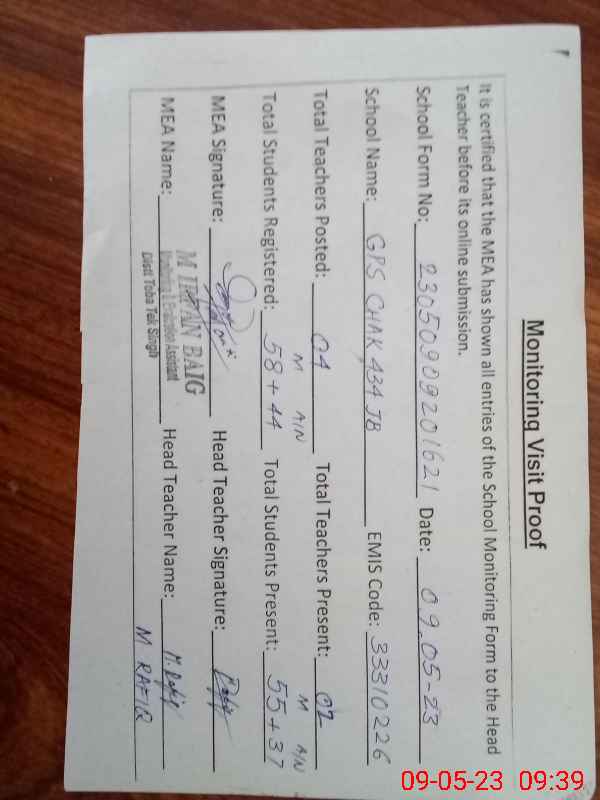 Monitoring Visit Proof
It is certified that the MEA has shown all entries of the School Monitoring Form to the Head
Teacher before its online submission.
School Form No: 23050909201621 Date: 09.05-23
School Name: GPS CHAK 434 JB EMIS Code: 33310226
Total Teachers Posted: 04 Total Teachers Present: 02
M A/N M A/N
Total Students Registered: 58+44 Total Students Present: 55+37
MEA Signature: Head Teacher Signature: Rafiq
M IRFAN BAIG
Monitoring & Evaluation Assistant
Distt Toba Tek Singh
MEA Name: Head Teacher Name: M. Rafiq
M RAFIQ
09-05-23 09:39